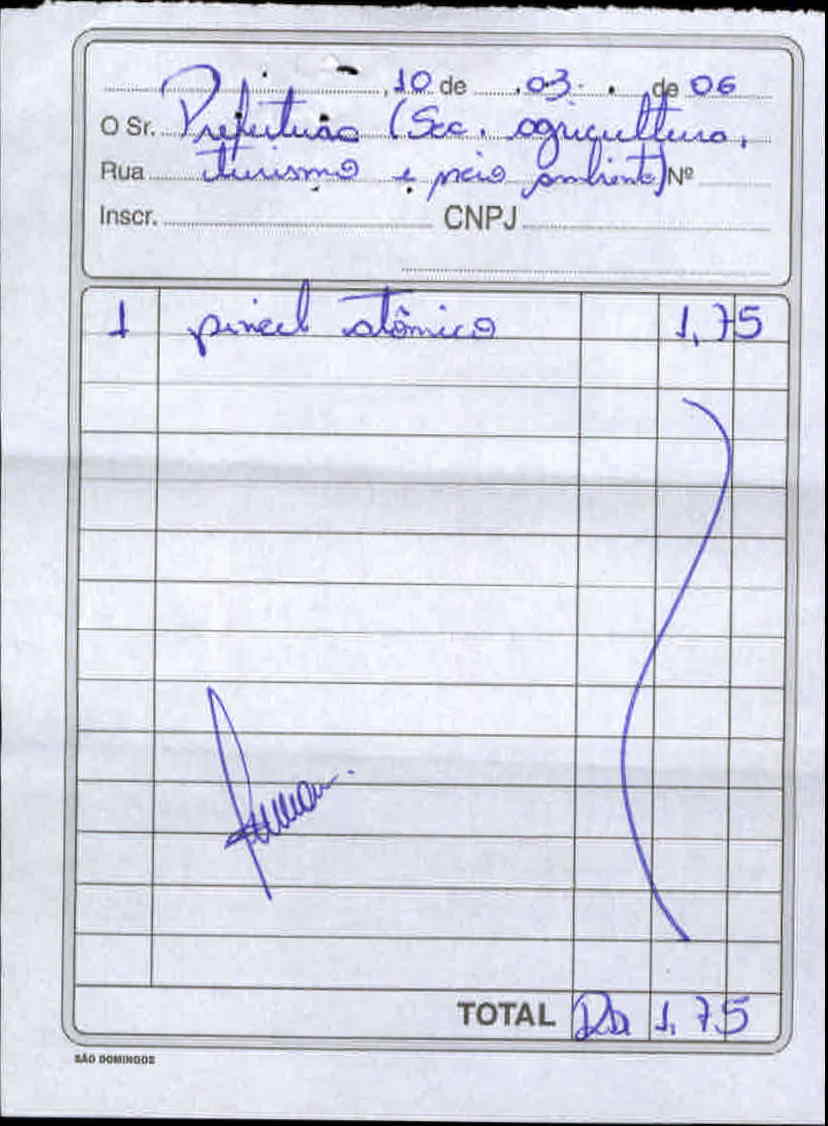 , 10 de 03 de 06
O Sr. Prefeitura (Sec. agricultura,
Rua turismo e meio ambiente) Nº
Inscr. CNPJ
1 pincel atômico 1,75
TOTAL R$ 1,75
SÃO DOMINGOS